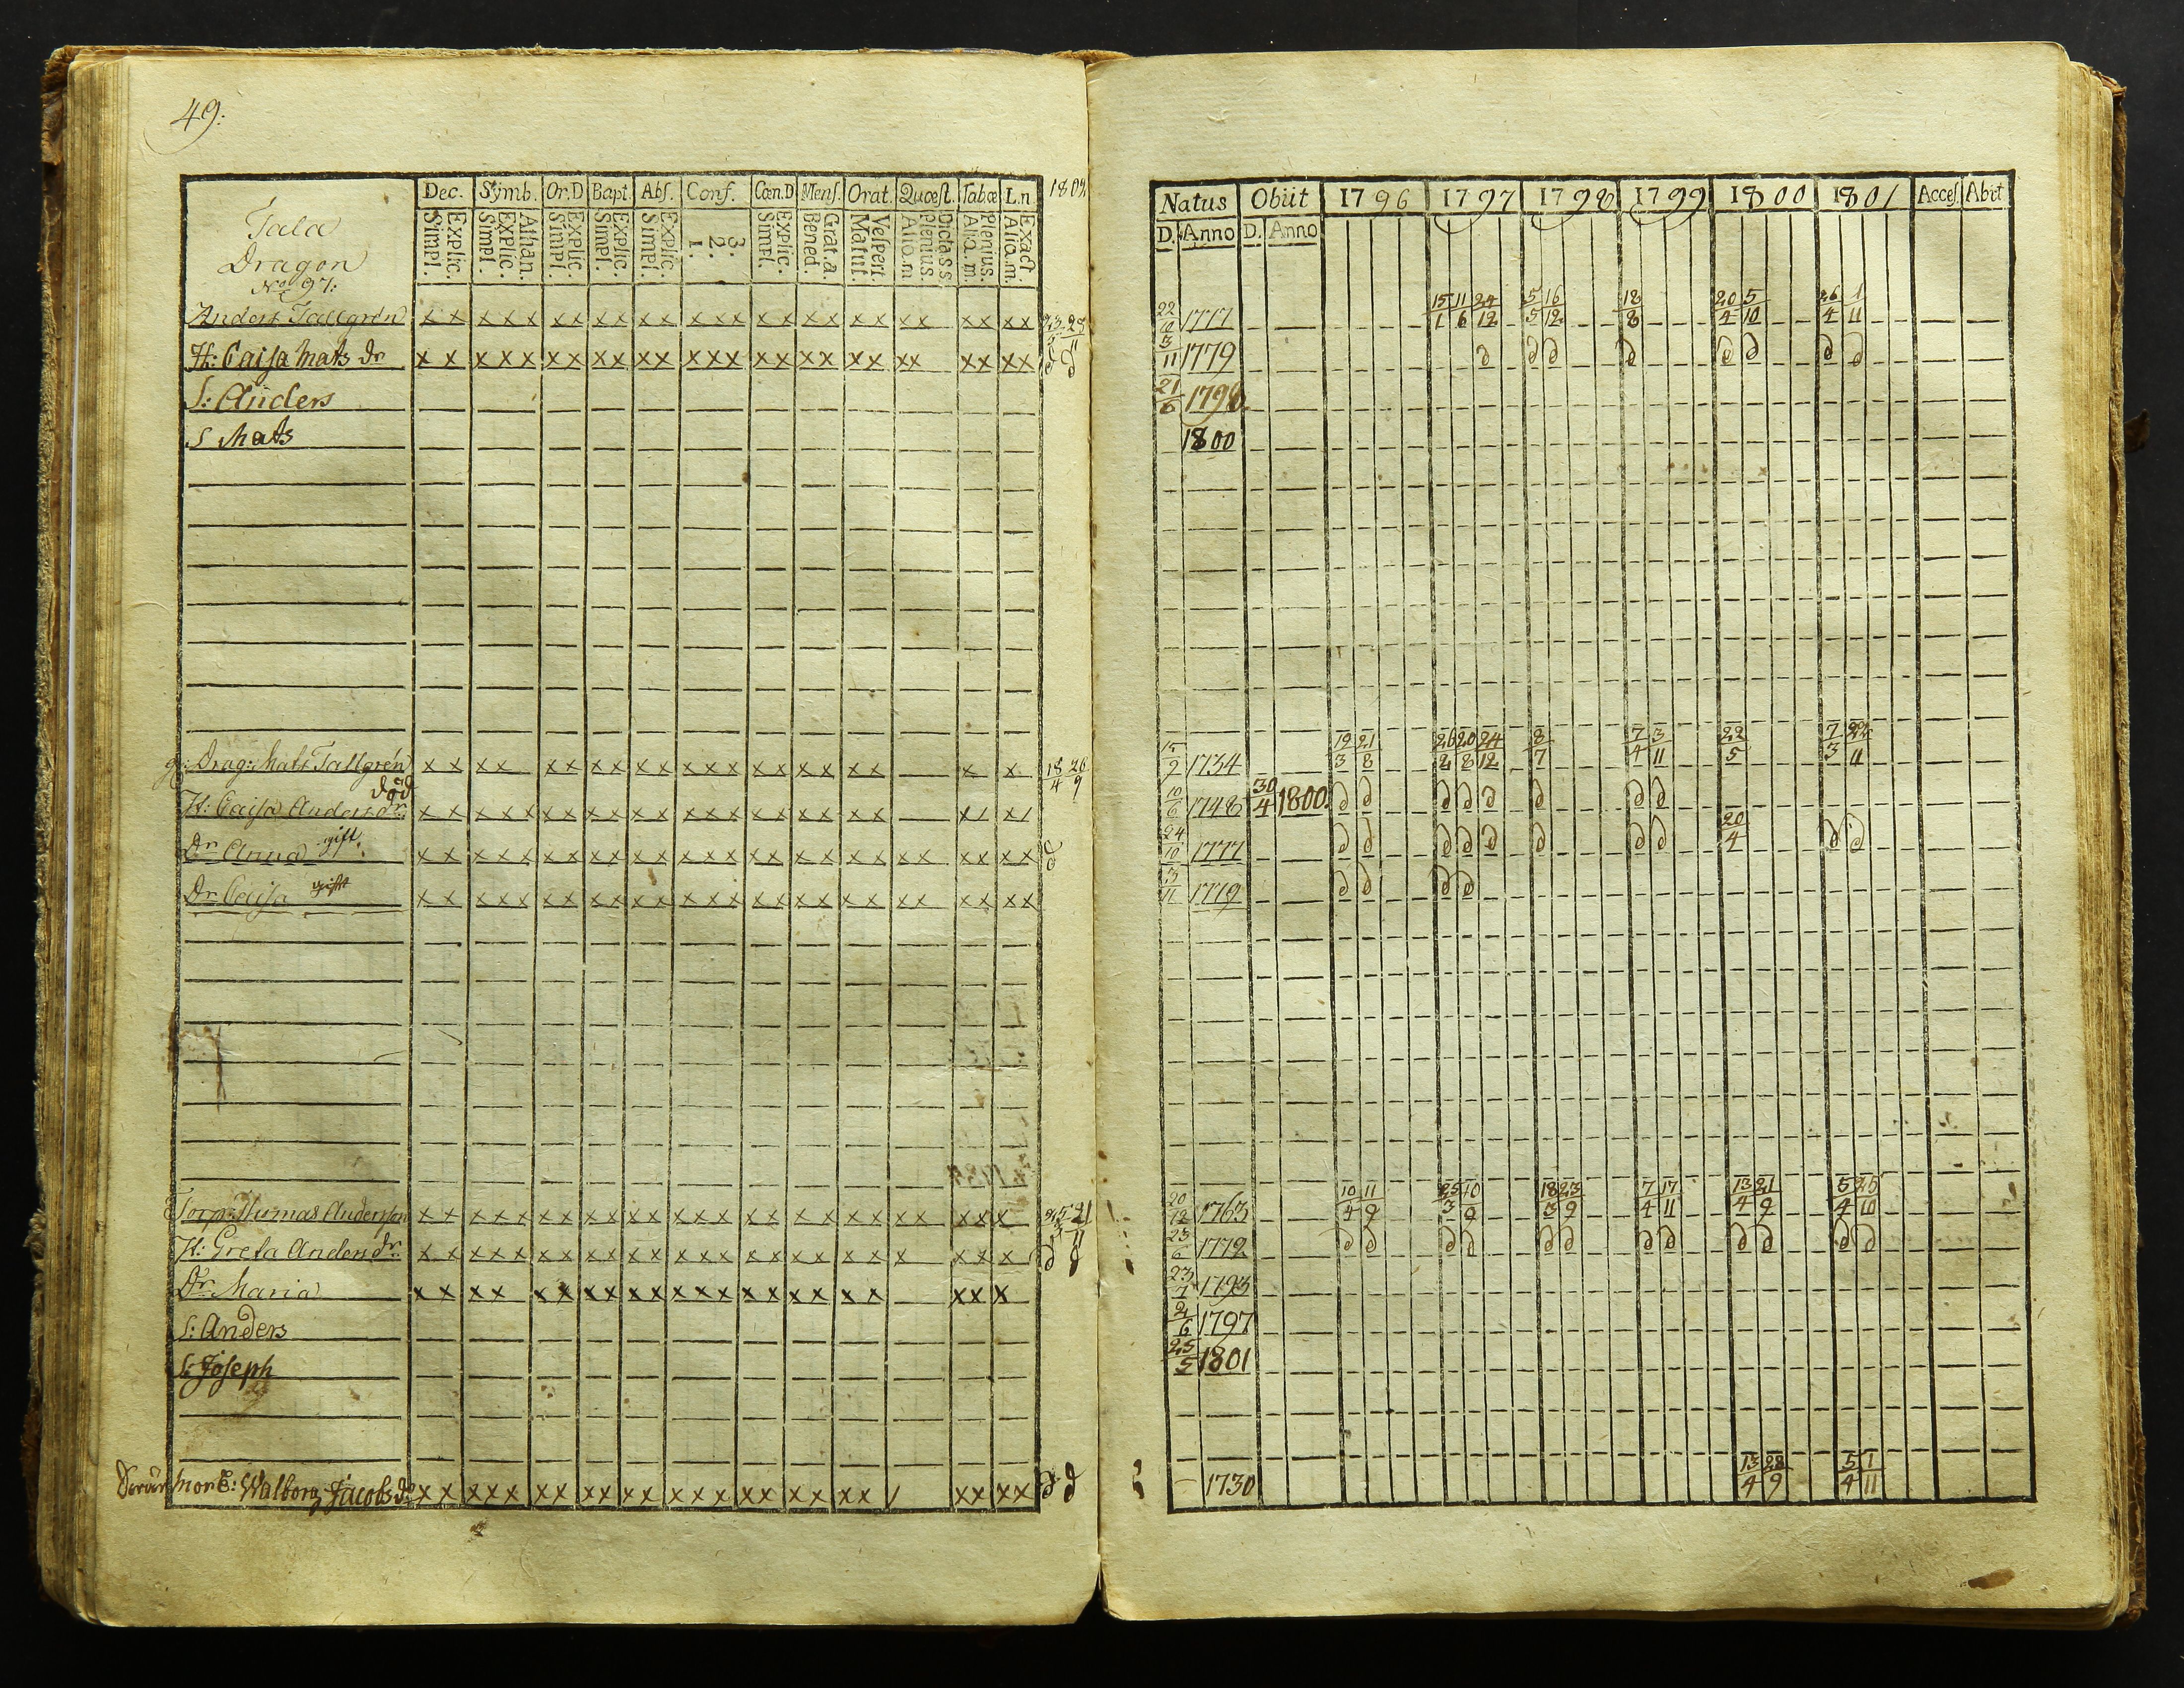 49:
Dec. Symb. Or.D Bapt. Abs. Conf. Cœn.D Mens. Orat. Quæst. Tabæ L.n. 1802
Simpl. Explic. Simpl. Explic. Athan. Simpl. Explic. Simpl. Explic. Simpl. Explic. 1. 2. 3. Simpl. Explic. Bened. Grat.a. Matut. Vespert. Aliq.m Plenius. Dicta s s Aliq.m. Plenius. Aliq.m. Exact
Tala
Dragon
No 97:
Anders Tallgrén x x x x x x x x x x x x x x x x x x x x x x x x x
H: Caisa Mats dr x x x x x x x x x x x x x x x x x x x x x x x x x x
S: Anders
S Mats
g: Drag: Mats Tallgrén x x x x x x x x x x x x x x x x x x x x x x 18/4 26/9
död
H: Caisa Anders dr
Dr Anna gift.
Dr Caisa gift
Torp: Thomas Andersson
H: Greta Anders dr
Dr Maria
S: Anders
S: Joseph
mor E: Walborg Jacobs d.
Natus Obiit 1796 1797 1798 1799 1800 1801 Acces. Abiit
D. Anno D. Anno
22/10 1777 15/1 11/6 24/12 5/5 16/12 18/8 20/4 5/10 26/4 1/11
3/11 1779 d d d d d d d d
21/6 1798
1800
15/9 1734 19/3 21/8 26/2 20/8 24/12 8/7 7/4 3/11 22/5 7/3 22/11
10/6 1748 30/4 1800 d d d d d d d d
24/10 1777 d d d d d d d d 20/4 d d
3/11 1779 d d d d
20/12 1763 10/4 11/9 25/3 10/9 18/3 23/9 7/4 17/11 13/4 21/9 5/4 25/10
23/6 1772 d d d d d d d d d d d d
23/7 1793
2/6 1797
25/5 1801
1730 13/4 28/9 5/4 1/11